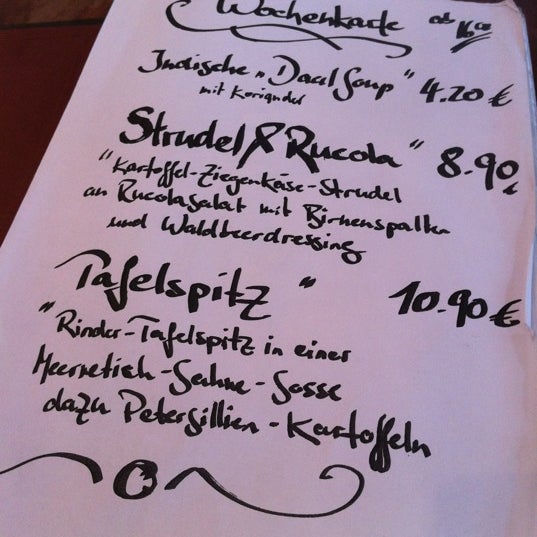 Wochenkarte ab 16.00
Indische "Daal Soup" 4.20 €
mit Koriander
Strudel & Rucola" 8.90 €
"Kartoffel-Ziegenkäse-Strudel
an Rucolasalat mit Birnenspalten
und Waldbeerdressing
Tafelspitz" 10.90 €
"Rinder-Tafelspitz in einer
Meerretich-Sahne-Sosse
dazu Petersillien-Kartoffeln